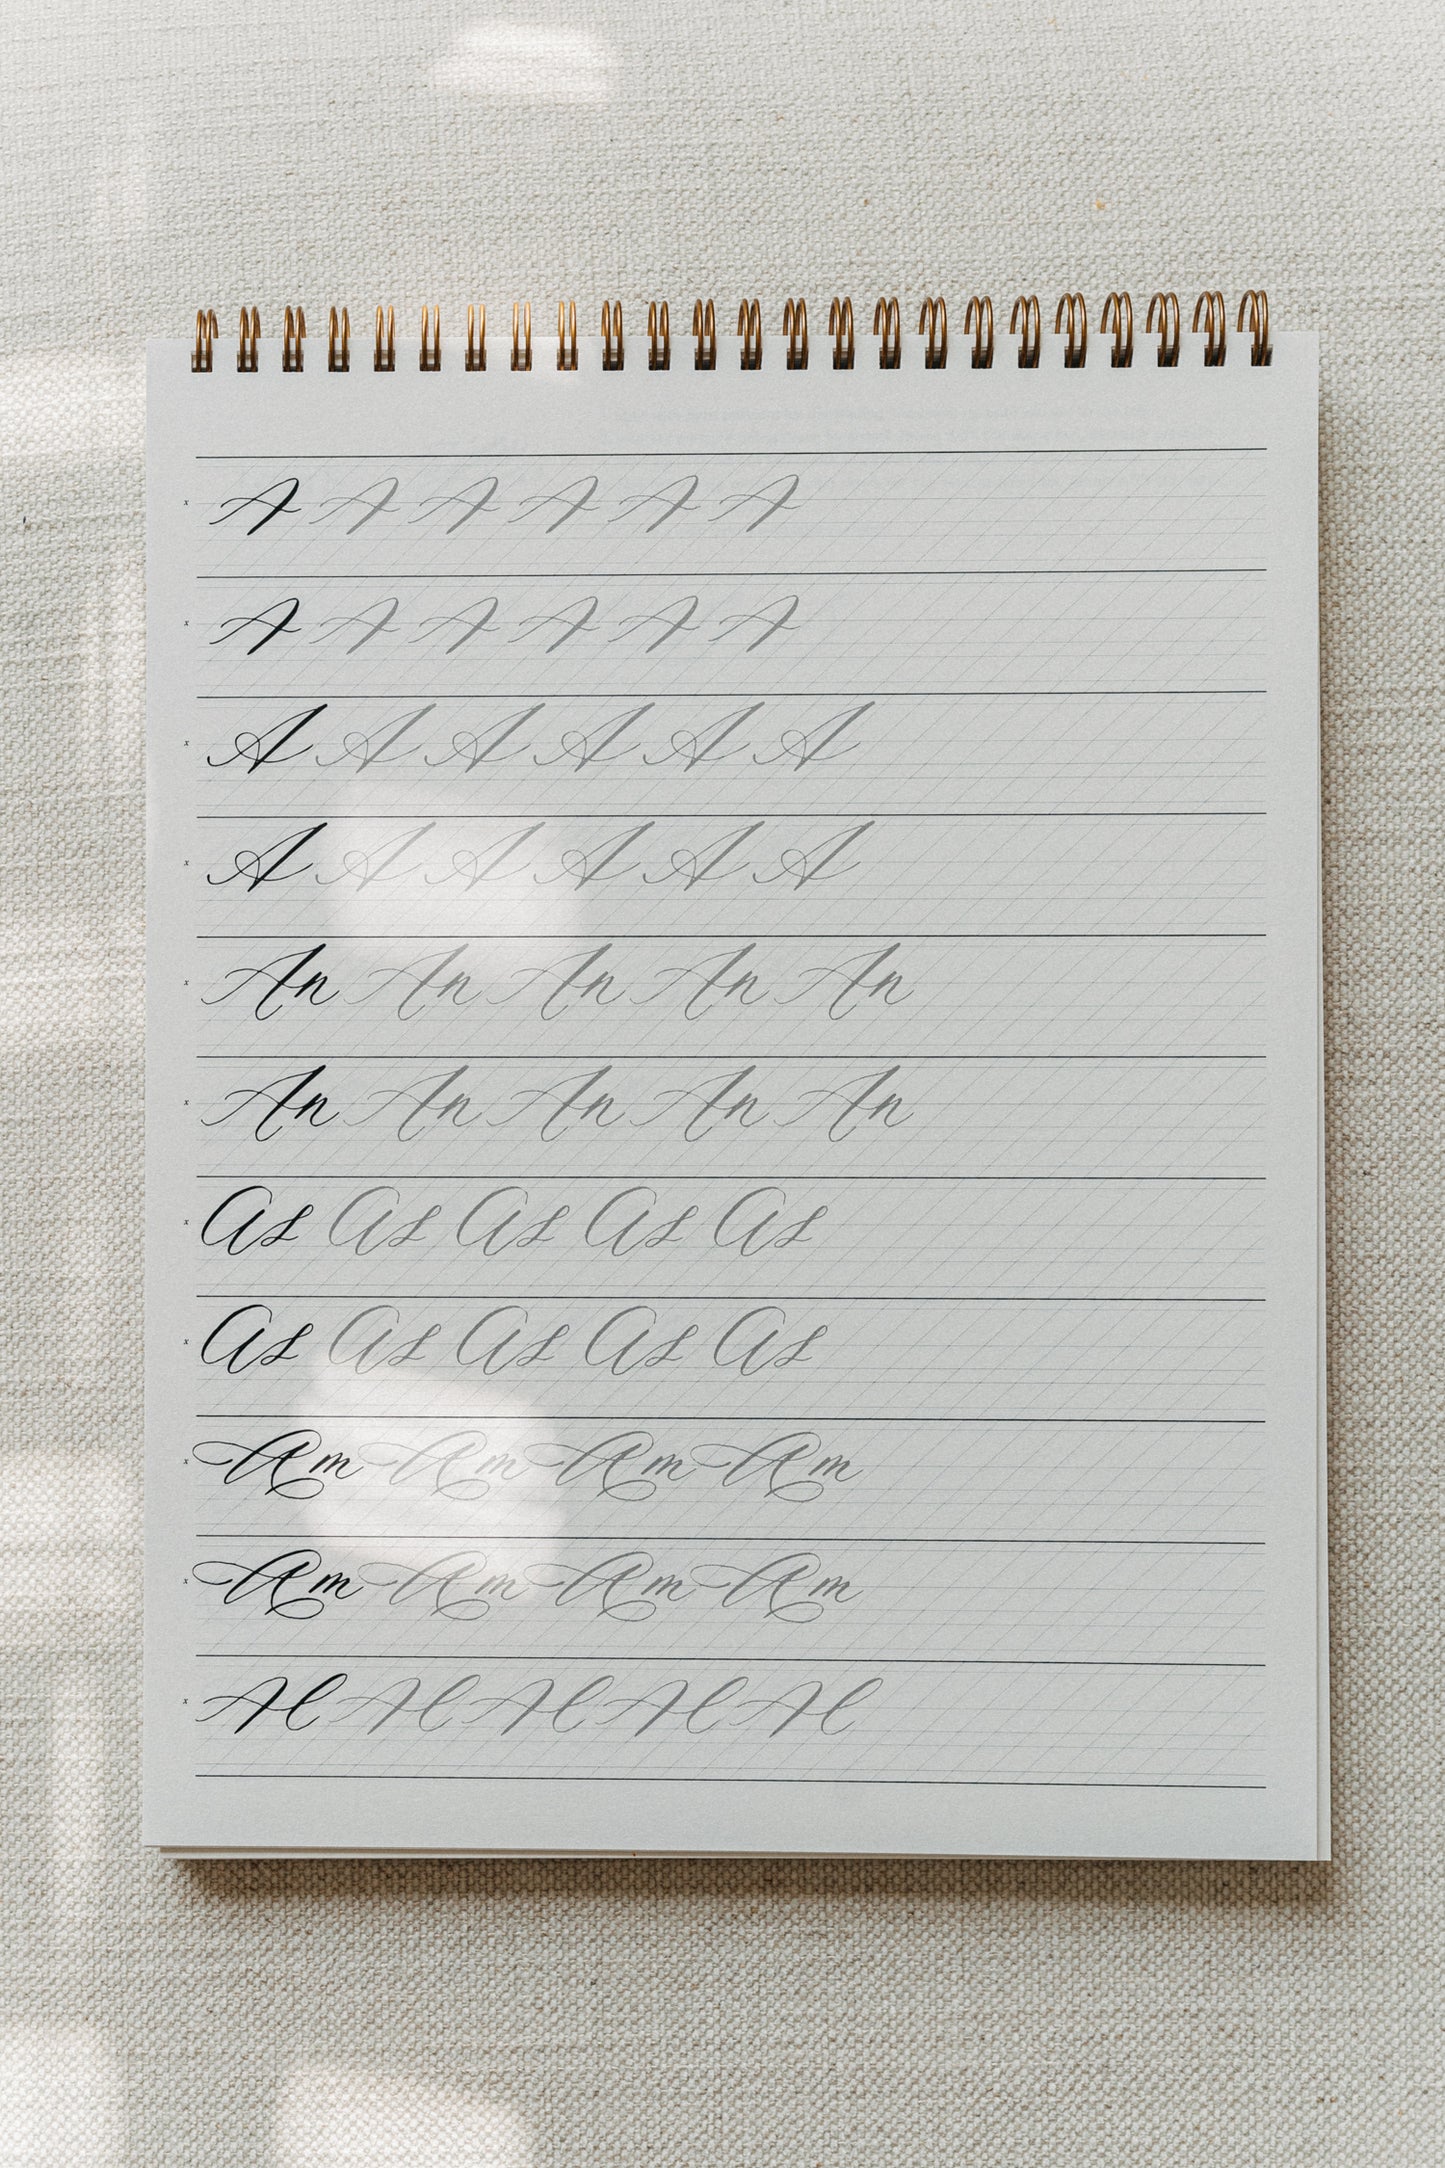 x A A A A A A
x A A A A A A
x A A A A A A
x A A A A A A
x An An An An An
x An An An An An
x As As As As As
x As As As As As
x Am Am Am Am
x Am Am Am Am
x Al Al Al Al Al